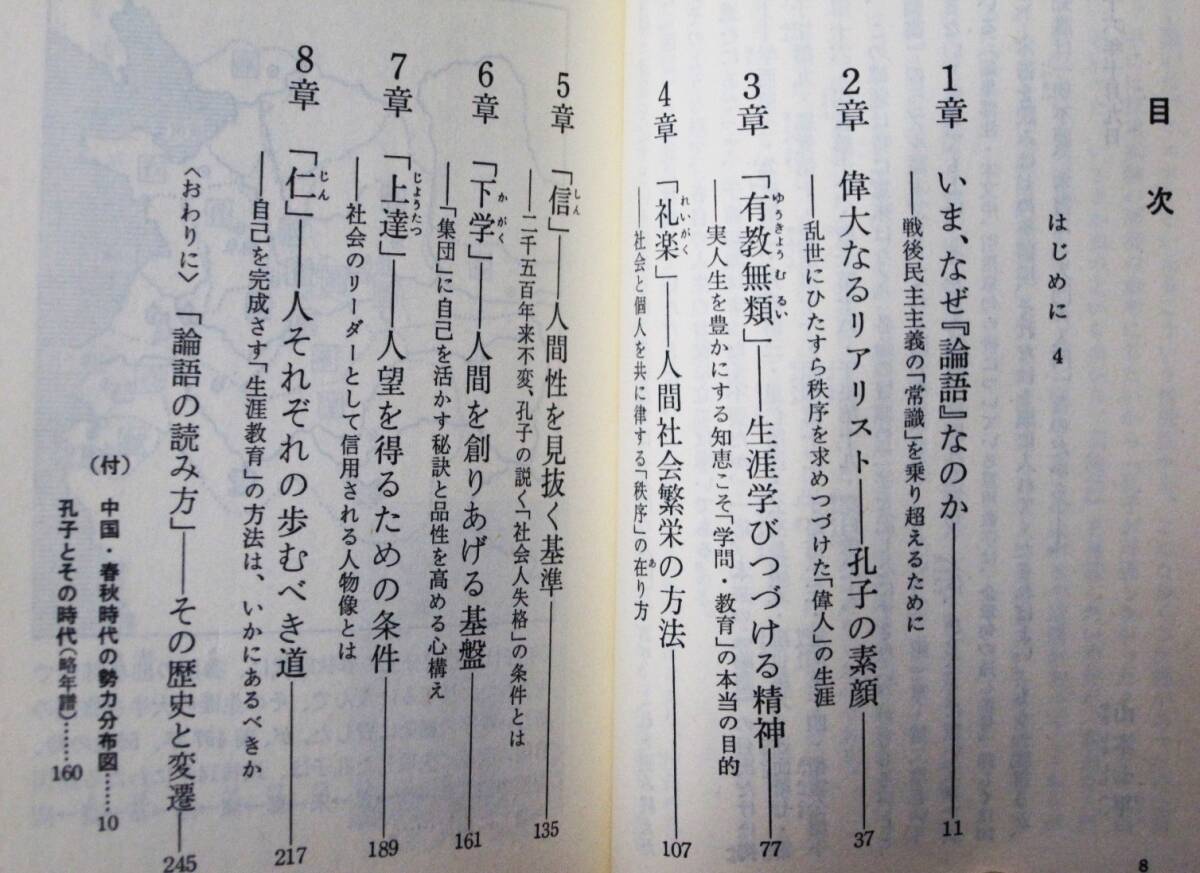 目次
はじめに 4
1章 いま、なぜ『論語』なのか 11
――戦後民主主義の「常識」を乗り超えるために
2章 偉大なるリアリスト――孔子の素顔 37
――乱世にひたすら秩序を求めつづけた「偉人」の生涯
3章 「有教無類」――生涯学びつづける精神 77
――実人生を豊かにする知恵こそ「学問・教育」の本当の目的
4章 「礼楽」――人間社会繁栄の方法 107
――社会と個人を共に律する「秩序」の在り方
8
5章 「信」――人間性を見抜く基準 135
――二千五百年来不変、孔子の説く「社会人失格」の条件とは
6章 「下学」――人間を創りあげる基盤 161
――「集団」に自己を活かす秘訣と品性を高める心構え
7章 「上達」――人望を得るための条件 189
――社会のリーダーとして信用される人物像とは
8章 「仁」――人それぞれの歩むべき道 217
――自己を完成さす「生涯教育」の方法は、いかにあるべきか
〈おわりに〉 「論語の読み方」――その歴史と変遷 245
(付) 中国・春秋時代の勢力分布図……10
孔子とその時代(略年譜)……160